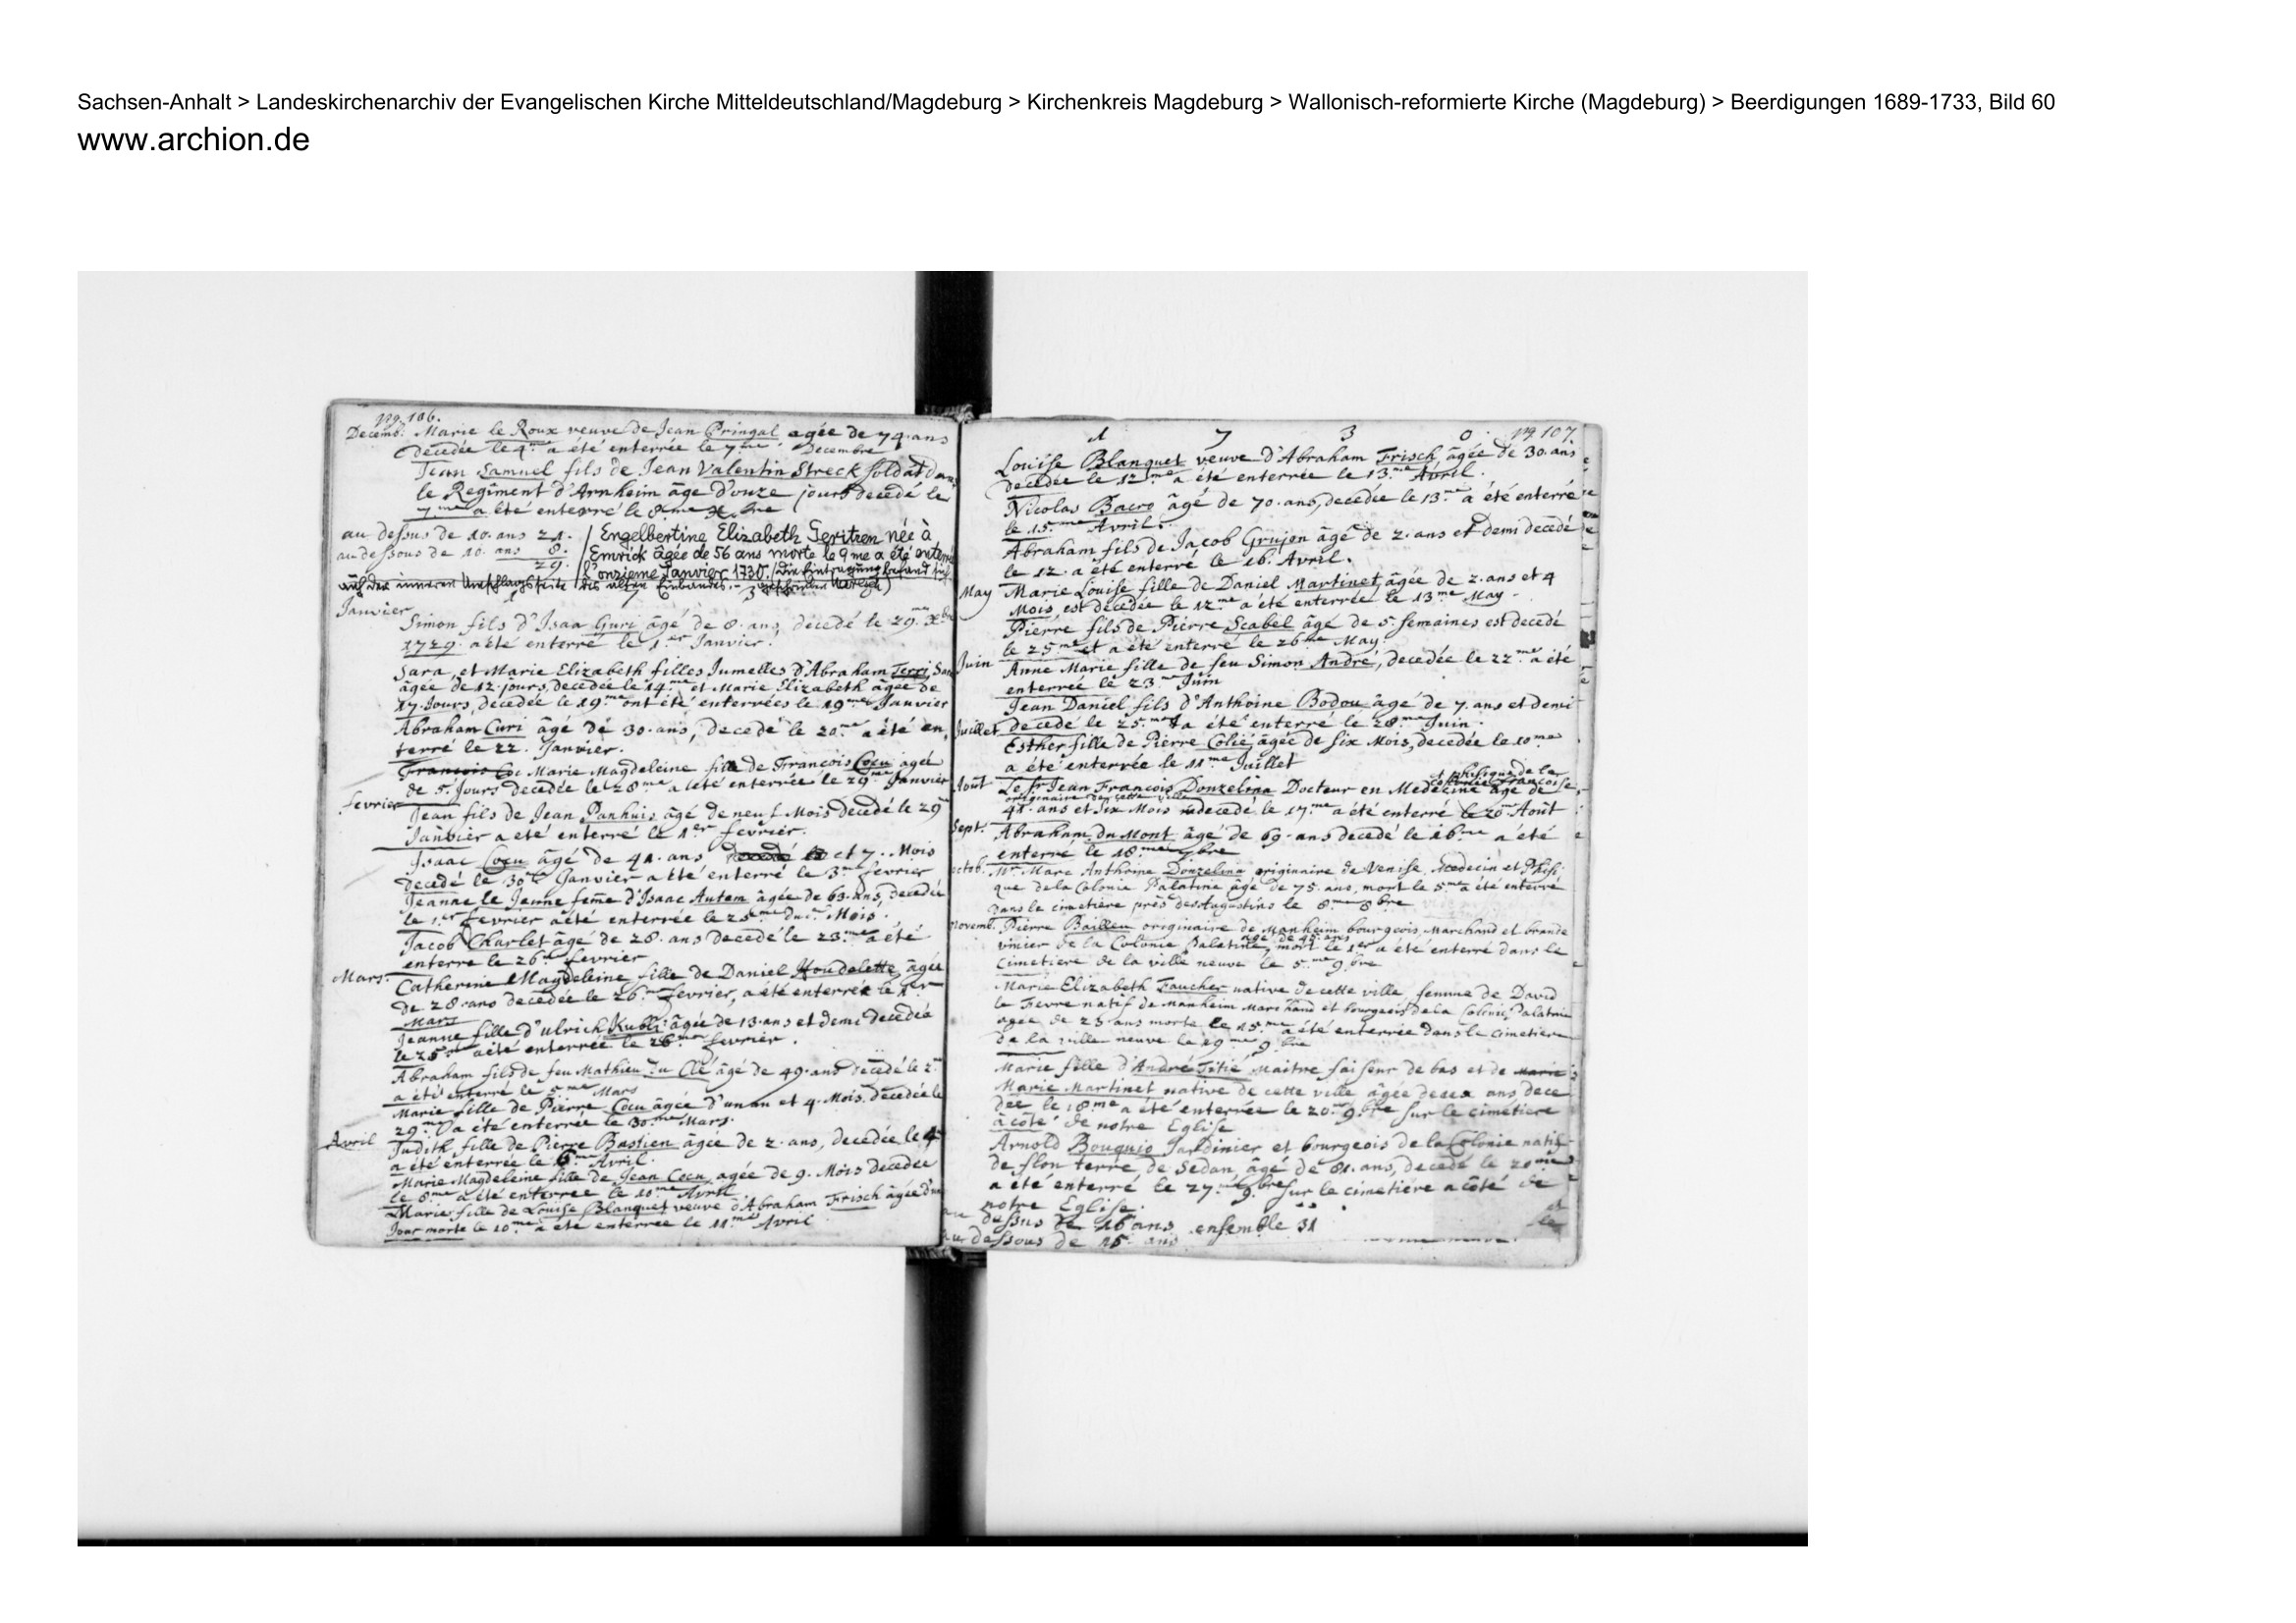 Sachsen-Anhalt > Landeskirchenarchiv der Evangelischen Kirche Mitteldeutschland/Magdeburg > Kirchenkreis Magdeburg > Wallonisch-reformierte Kirche (Magdeburg) > Beerdigungen 1689-1733, Bild 60
www.archion.de
pg. 106.
Decemb. Marie le Roux veuve de Jean Pringal agée de 74 ans
decedée le 4me a été enterrée le 7me Decembre
Jean Samuel fils de Jean Valentin Streck soldat dans
le Regiment d'Arnheim âge d'onze jours decedé le
7me a été enterré le 8me Xbre
au dessus de 10. ans 21.
au dessous de 10. ans 8.
29.
Engelbertine Elizabeth née à
Emrick âgée de 56 ans morte le 9me a été enterrée
l'onzieme Janvier 1730. (Die Eintragung befand sich
auf der inneren Umschlagseite des alten Einbandes.
Janvier
Simon fils d'Isaa Guri âgé de 8. ans, decedé le 29. Xbre
1729. a été enterré le 1er Janvier.
Sara et Marie Elizabeth filles Jumelles d'Abraham Terri, Sara
âgée de 12. jours, decedée le 14me et Marie Elizabeth âgée de
17. Jours, decedée le 19me ont été enterrées le 19me Janvier
Abraham Curi âgé de 30. ans, decedé le 20me a été en,
terré le 22. Janvier.
Marie Magdeleine fille de François Cocu agée
de 5. Jours decedée le 28me a été enterrée le 29me Janvier
fevrier
Jean fils de Jean Panhuis âgé de neuf Mois decedé le 29
Janvier a eté enterré le 1er fevrier.
Isaac Cocu âgé de 41. ans et 7. Mois
decedé le 30 Janvier a été enterré le 3 fevrier
Jeanne le Jeune feme d'Isaac Autem âgée de 63. ans, decedée
le 1er fevrier a été enterrée le Mois.
Jacob Charlet âgé de 28. ans decedé le 23me a été
enterré le 26 fevrier
Mars. Catherine Magdeleine fille de Daniel Houdelette, âgée
de 28. ans decedée le 26me fevrier, a été enterrée le 1er
Mars
Jeanne fille d'ulrich Kubli âgée de 13. ans et demi decedée
le 25 a été enterrée le 26me fevrier.
Abraham fils de feu Mathieu du Clé âgé de 49. ans decedé le 2
a été enterré le 5me Mars
Marie fille de Pierre Cocu âgée d'un an et 4. Mois decedée le
29me a été enterrée le 30me Mars.
Avril Judith fille de Pierre Bastien âgée de 2. ans, decedée le 4
a été enterrée le 6me Avril.
Marie Magdeleine fille de Jean Cocu, agée de 9. Mois decedée
le 8me a été enterrée le 10me Avril
Marie fille de Louise Blanquet veuve d'Abraham Frisch âgée d'un
Jour morte le 10me a été enterrée le 11me Avril
1 7 3 0. pg 107.
Louise Blanquet veuve d'Abraham Frisch âgée de 30. ans
decedée le 12me a été enterrée le 13me Avril.
Nicolas Bacro âgé de 70. ans, decedée le 13me a été enterré
le 15me Avril.
Abraham fils de Jacob Grujon âgé de 2. ans et demi decedé
le 12. a été enterré le 16. Avril.
May Marie Louise fille de Daniel Martinet, âgée de 2. ans et 4
Mois, est decedée le 12me a été enterrée le 13me May
Pierre fils de Pierre Scabel âgé de 5. semaines est decedé
le 25me et a été enterré le 26me May.
Juin Anne Marie fille de feu Simon André, decedée le 22me a été
enterrée le 23me Juin
Jean Daniel fils d'Anthoine Bodou âgé de 7. ans et demi
decedé le 25me a été enterré le 28me Juin.
Juillet
Esther fille de Pierre Colié, âgée de six Mois, decedée le 10me
a été enterrée le 11me Juillet
et phisique de la
colonie Françoise,
Aout Le Sr Jean François Donzelina Docteur en Medecine âgé de
originaire de cette ville
ans et six Mois decedé le 17me a été enterré le 20me Août
Sept. Abraham du Mont âgé de 69. ans decedé le 16me a été
enterré le 18me 7bre
octob. Mr. Marc Anthoine Donzelina originaire de Venise, Medecin et Phisi
que de la Colonie Palatine âgé de 75. ans, mort le 5me a été enterré
Dans le cimetière près des Augustins le 8me 8bre
Novemb. Pierre Bailleu originaire de Manheim bourgeois, Marchand et brande
age de 45. ans
vinier de la Colonie Palatine, mort le 1er a été enterré dans le
Cimetiere de la ville neuve le 5me 9bre
Marie Elizabeth Faucher native de cette ville, femme de David
le Fevre natif de Manheim Marchand et bourgeois de la Colonie Palatine
agée de 23 ans morte le 15me a été enterrée dans le cimetiere
de la ville neuve le 19me 9bre
Marie fille d'André Titié Maitre faiseur de bas et de
Marie Martinet native de cette ville âgée deux ans dece
dée le 18me a été enterrée le 20me 9bre sur le cimetiere
à côté de notre Eglise
Arnold Bouquio Jardinier et bourgeois de la Colonie natif
de flon terre de Sedan, âgé de 81. ans, decedé le
a été enterré le 27me 9bre sur le cimetiére a côté de
notre Eglise.
au dessus de 16 ans ensemble 31
au dessous de 15 ans